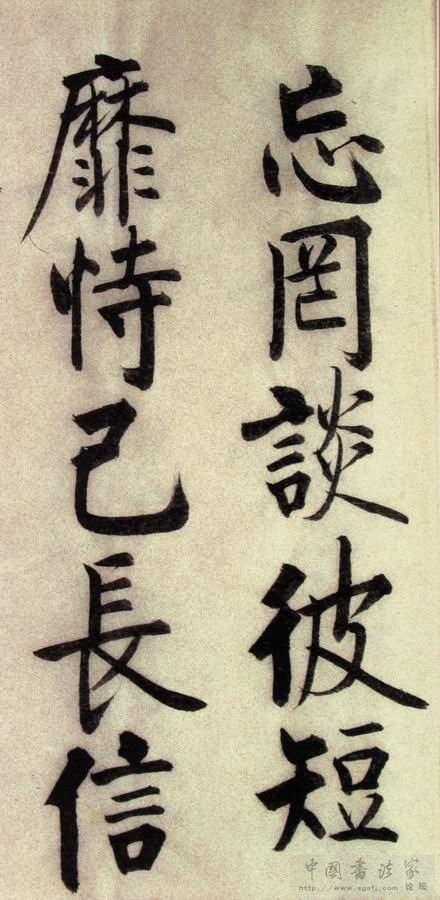 忘罔談彼短
靡恃己長信
中国書法家
论坛
http://www.zgsfj.com